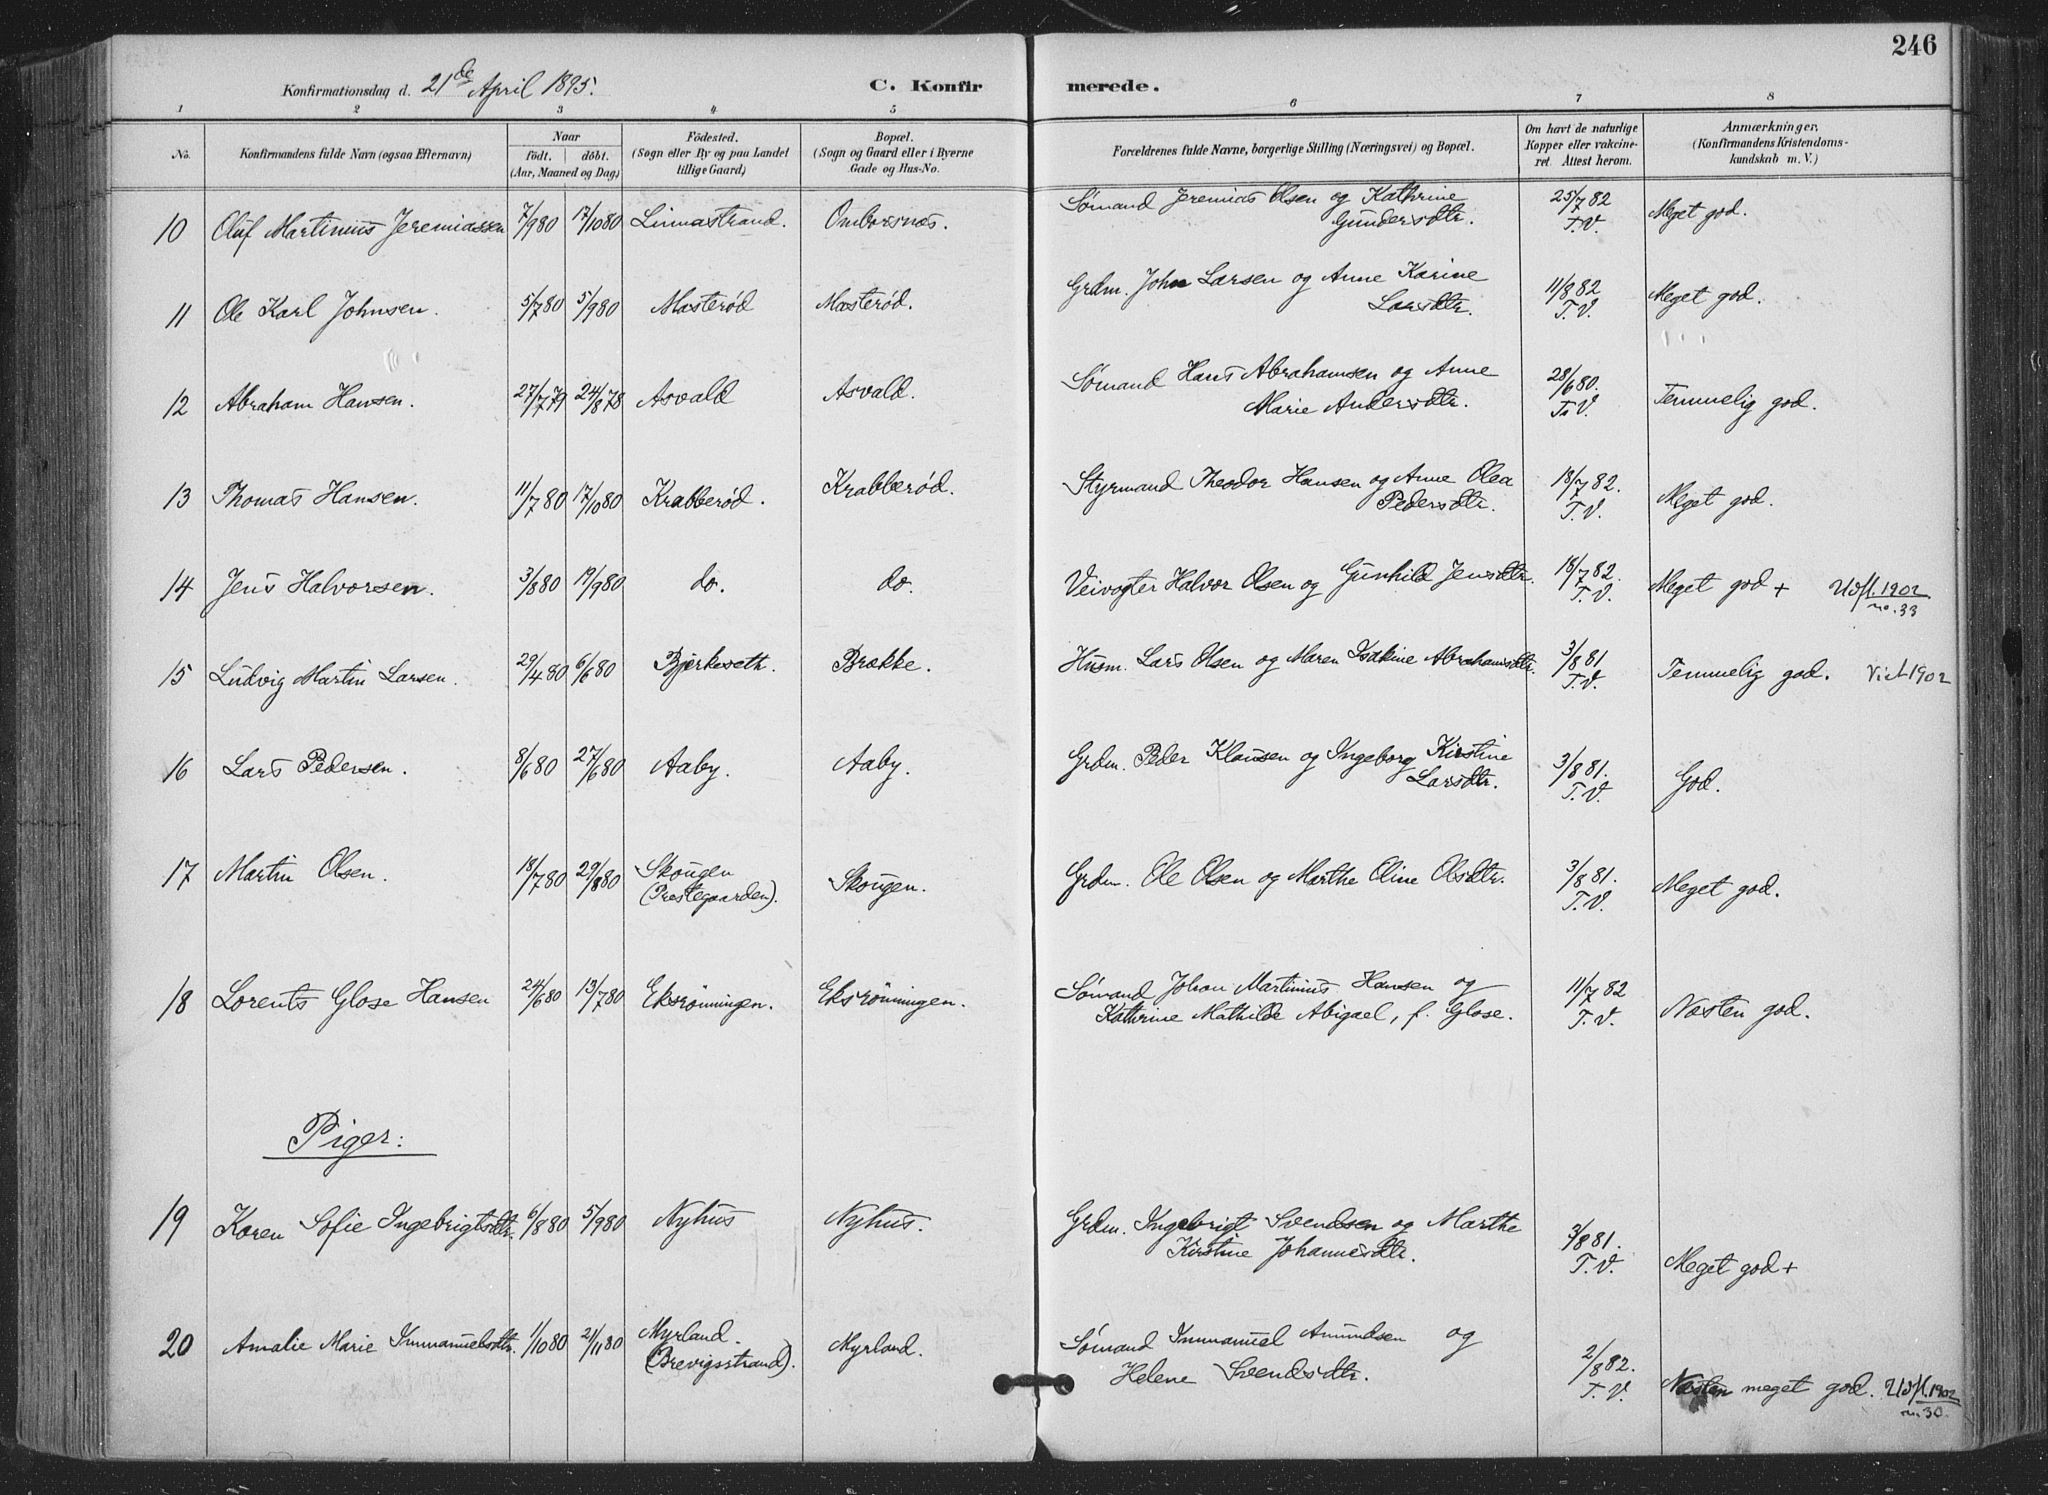 246
Konfirmationsdag d. 21de April 1895. C. Konfirmerede.
1 2 3 4 5 6 7 8
No. Konfirmandens fulde Navn (ogsaa Efternavn) Naar födt. döbt. (Aar, Maaned og Dag) Födested. (Sogn eller By og paa Landet tillige Gaard) Bopæl. (Sogn og Gaard eller i Byerne Gade og Hus-No. Forældrenes fulde Navne, borgerlige Stilling (Næringsvei) og Bopæl. Om havt de naturlige Kopper eller vakcineret. Attest herom. Anmærkninger. (Konfirmandens Kristendomskundskab m. V.)
10 Oluf Martinius Jeremiassen 7/9 80 17/10 80 Linnastrand. Omborsnæs. Sømand Jeremias Olsen og Kathrine Gundersdtr. 25/7 82 T.V. Meget god.
11 Ole Karl Johnsen. 5/7 80 5/9 80 Masterød Masterød. Grdm. John Larsen og Anne Karine Larsdtr. 11/8 82 T.V. Meget god.
12 Abraham Hansen. 27/7 79 24/8 78 Asvald Asvald. Sømand Hans Abrahamsen og Anne Marie Andersdtr. 28/6 80. T.V. Temmelig god.
13 Thomas Hansen. 11/7 80 17/10 80 Krabberød. Krabberød. Styrmand Theodor Hansen og Anne Olea Pedersdtr. 18/7 82. T.V. Meget god.
14 Jens Halvorsen. 3/8 80 19/9 80 do. do. Veivogter Halvor Olsen og Gunhild Jensdtr. 18/7 82. T.V. Meget god + Udfl. 1902 no. 33
15 Ludvig Martin Larsen. 29/4 80 6/6 80 Bjerkeseth. Brække. Husm. Lars Olsen og Maren Isakine Abrahamsdtr. 3/8 81 T.V. Temmelig god. Viet 1902
16 Lars Pedersen. 8/6 80 27/6 80 Aaby. Aaby. Grdm. Peder Klausen og Ingeborg Kirstine Larsdtr. 3/8 81. T.V. God.
17 Martin Olsen. 18/7 80 29/8 80 Skougen (Prestegaarden). Skougen. Grdm. Ole Olsen og Marthe Oline Olsdtr. 3/8 81. T.V. Meget god.
18 Lorents Glose Hansen 24/6 80 13/7 80 Eksrönningen. Eksrönningen. Sømand Johan Martinius Hansen og Kathrine Mathilde Abigael, f. Glose. 11/7 82 T.V. Næsten god.
Piger:
19 Karen Sofie Ingebrigtsdtr. 6/8 80 5/9 80 Nyhus Nyhus. Grdm. Ingebrigt Svendsen og Marthe Kirstine Johannesdtr. 3/8 81. T.V. Meget god +
20 Amalie Marie Immanuelsdtr. 1/10 80 21/11 80 Myrland. (Brevigsstrand). Myrland. Sømand Immanuel Amundsen og Helene Svendsdtr. 2/8 82. T.V. Næsten meget god. Udfl. 1902 no. 30.